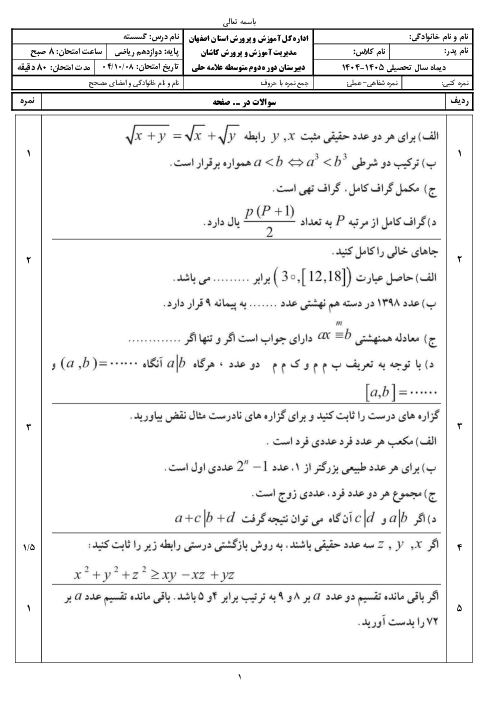 باسمه تعالی
نام و نام خانوادگی: اداره کل آموزش و پرورش استان اصفهان نام درس: گسسته
نام پدر: نام کلاس: مدیریت آموزش و پرورش کاشان پایه: دوازدهم ریاضی ساعت امتحان: 8 صبح
دیماه سال تحصیلی 1405-1404 دبیرستان دوره دوم متوسطه علامه حلی تاریخ امتحان: 04/10/08 مدت امتحان: 80 دقیقه
نمره کتبی: نمره شفاهی- عملی: جمع نمره با حروف نام و نام خانوادگی و امضای مصحح
ردیف سوالات در ... صفحه نمره
۱ الف) برای هر دو عدد حقیقی مثبت x , y رابطه √(x+y) = √x + √y ۱
ب) ترکیب دو شرطی a < b ⇔ a³ < b³ همواره برقرار است.
ج) مکمل گراف کامل، گراف تهی است.
د) گراف کامل از مرتبه P به تعداد p(P+1)/2 یال دارد.
۲ جاهای خالی را کامل کنید. ۲
الف) حاصل عبارت (3۰,[12,18]) برابر ......... می باشد.
ب) عدد ۱۳۹۸ در دسته هم نهشتی عدد ....... به پیمانه ۹ قرار دارد.
ج) معادله همنهشتی ax ≡ᵐ b دارای جواب است اگر و تنها اگر .............
د) با توجه به تعریف ب م م و ک م م دو عدد ، هرگاه a|b آنگاه (a,b) = ...... و
[a,b] = ......
۳ گزاره های درست را ثابت کنید و برای گزاره های نادرست مثال نقض بیاورید. ۳
الف) مکعب هر عدد فرد عددی فرد است .
ب) برای هر عدد طبیعی بزرگتر از ۱، عدد 2ⁿ − 1 عددی اول است.
ج) مجموع هر دو عدد فرد، عددی زوج است.
د) اگر a|b و c|d آن گاه می توان نتیجه گرفت a+c|b+d
۴ اگر x , y , z سه عدد حقیقی باشند، به روش بازگشتی درستی رابطه زیر را ثابت کنید: ۱/۵
x² + y² + z² ≥ xy − xz + yz
۵ اگر باقی مانده تقسیم دو عدد a بر ۸ و ۹ به ترتیب برابر ۴ و ۵ باشد. باقی مانده تقسیم عدد a بر ۱
۷۲ را بدست آورید.
۱